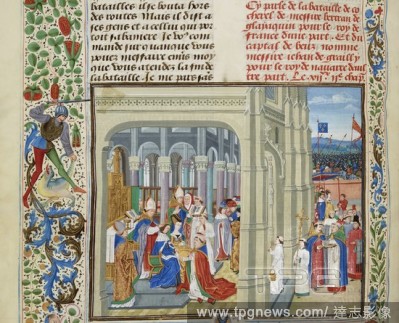 batailles ise bouta hors
des routes Mais il dist a
ses gens et a cellui qui por
toit sa baniere Je vo⁹ com
mande sur quanque vous
pouez messaire enuers moy
vous attendez la fin de
la bataille Je me puis faire
Cy parle de la bataille de co
cherel de messire bertran de
glaiquin pour le roy de
france dune part Et du
captal de beuz nomme
messire jehan de grailly
pour le roy de nauarre dau
tre part. Le vij.e iij.c chap.
www.tpgnews.com/ 達志影像